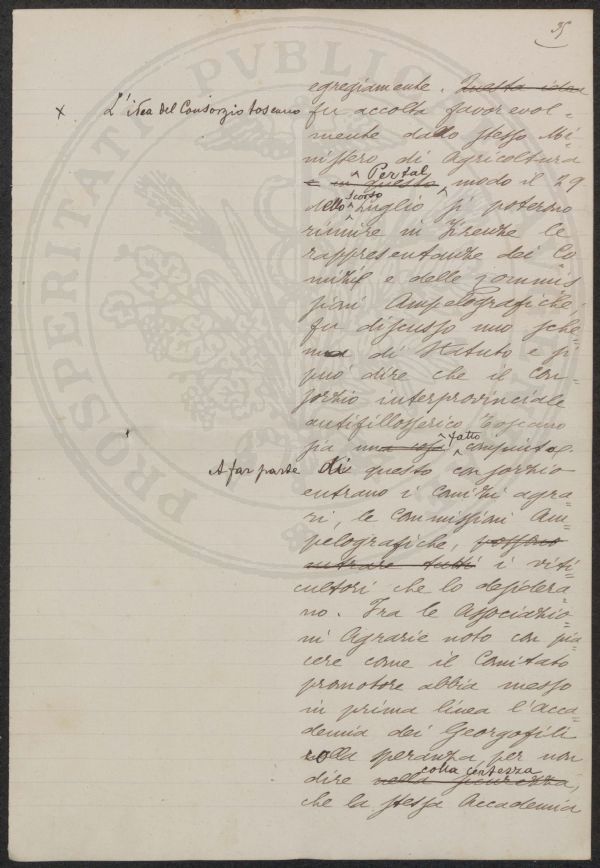 35
egregiamente. Questa idea
x L'idea del Consorzio toscano fu accolta favorevol=
mente dallo stesso Mi=
nistero di Agricoltura
e in questo Per tal modo il 29
dello scorso Luglio si poterono
riunire in Firenze le
rappresentanze dei Co
mizii e delle Commis
sioni Ampelografiche.
fu discusso uno sche=
ma di Statuto e si
può dire che il Con=
sorzio interprovinciale
antifillosserico Toscano
sia una cosa fatto compiuto.
A far parte di questo consorzio
entrano i Comizi agra
ri, le Commissioni Am=
pelografiche, possono
entrare tutti i viti=
cultori che lo desidera
no. Fra le Associazio=
ni Agrarie noto con pia=
cere come il Comitato
promotore abbia messo
in prima linea l'Acca=
demia dei Georgofili
colla speranza per non
dire nella sicurezza, colla certezza
che la stessa Accademia
PVBLICAE
PROSPERITATI